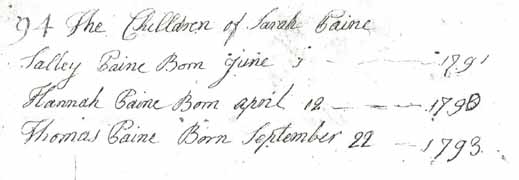 94 The Chelldren of Sarah Paine
Salley Paine Born June — — 1791
Hannah Paine Born april 12 — — —
Thomas Paine Born September 22 — 1793